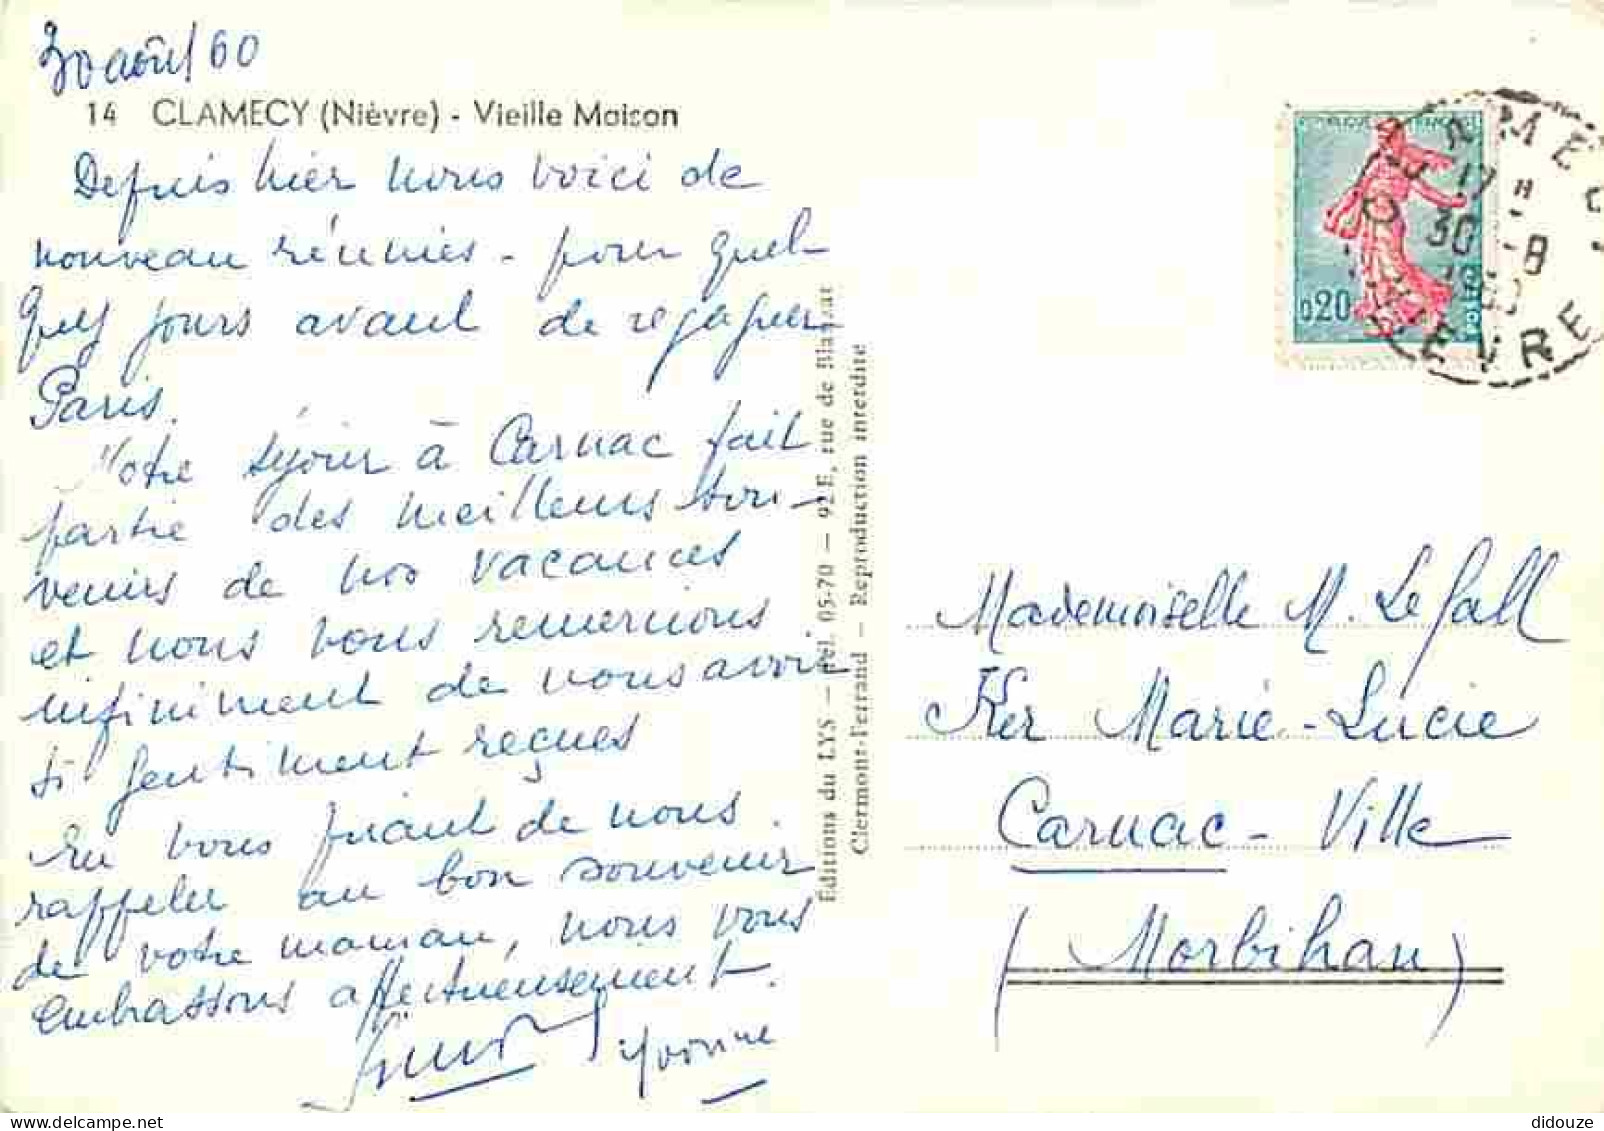 30 août 60
14 CLAMECY (Nièvre) - Vieille Maison
Depuis hier nous voici de
nouveau réunies - pour quel-
ques jours avant de regagner
Paris.
Notre séjour à Carnac fait
partie des meilleurs sou-
venirs de nos vacances
et nous vous remercions
infiniment de nous avoir
si gentiment reçues
En vous priant de nous
rappeler au bon souvenir
de votre maman, nous vous
embrassons affectueusement.
Yvonne
Editions du LYS - Tél. 05-70 - 92E, rue de Blanzat
Clermont-Ferrand - Reproduction interdite
REPUBLIQUE FRANÇAISE
0,20
POSTES
17 H
30 - 8
1960
NIEVRE
Mademoiselle M. Le Gall
Ker Marie-Lucie
Carnac-Ville
(Morbihan)
didouze